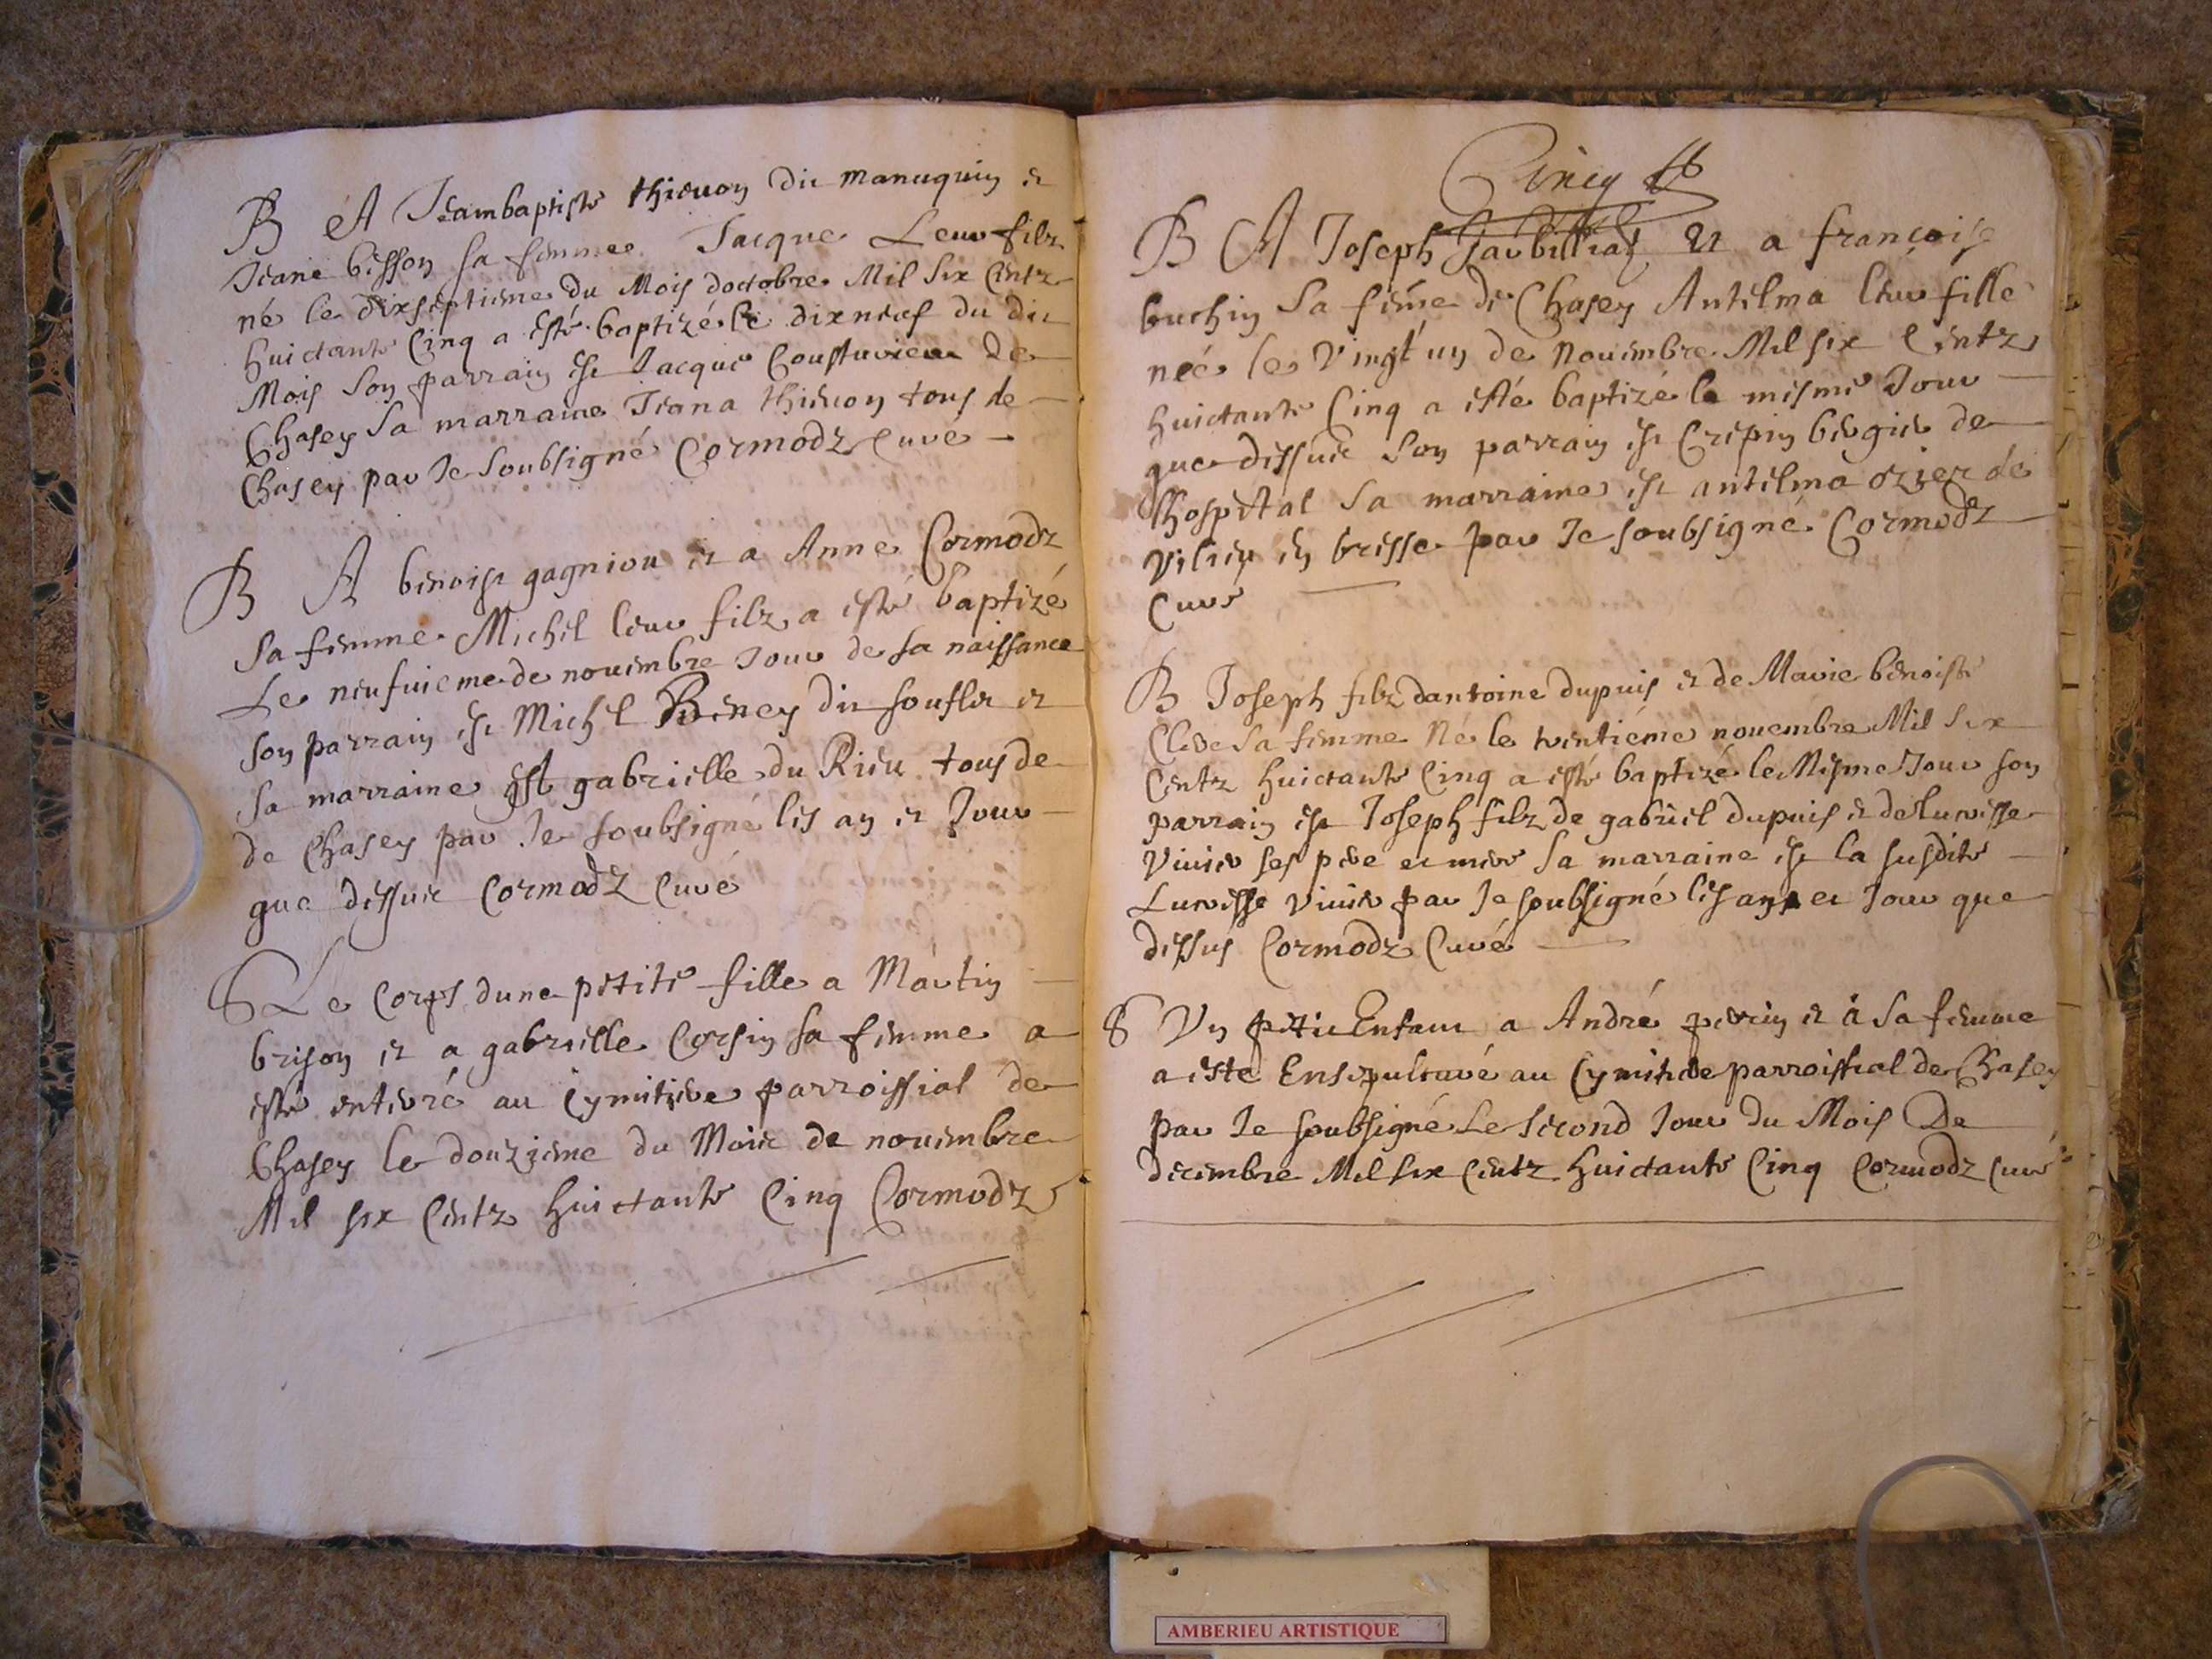 B A Jeambaptiste thieuon dit manuquin et
Jeane bisson sa femmee Jacque Leur filz
né le dixseptieme du Mois doctobre Mil Six Centz
huictante Cinq a esté baptizé le dixneuf du dit
Mois Son parrain est Jacque Cousturieu de
Chasey Sa marraine Jeana thieuon tous de
Chasey par Je Soubsigné Cormodz Curé
B A benoist gagniou et a Anne Cormodz
Sa femme Michel leur filz a esté baptizé
Le neufuieme de nouembre Jour de sa naissance
son parrain est Michel Reney dit souflet et
Sa marraine est gabrielle du Rieu tous de
de Chasey par Je soubsigné les an et Jour
que dessus Cormodz Curé
S Le Corps dune petite fille a Martin
brison et a gabrielle Corsin sa femme a
esté enterré au Cymitiere parroissial de
Chasey le douzieme du Mois de nouembre
Mil six Centz huictante Cinq Cormodz
Cincq
B A Joseph et a françoise
buchin Sa feme de Chasey Antelma leur fille
neé le Vingt un de Nouembre Mil six Centz
huictante Cinq a esté baptizé le mesme Jour
que dessus Son parrain est Crepin bergier de
lhospital Sa marraine est antelma ozier de
Vilieu en bresse par Je soubsigné Cormodz
Curé
B Joseph filz dantoine dupuis et de Marie benoiste
Clere Sa femme Né le trentieme nouembre Mil Six
Centz huictante Cinq a esté baptizé le Mesme Jour son
parrain est Joseph filz de gabriel dupuis et de Lucresse
Viuier ses pere et mere Sa marraine est la susdite
Lucresse Viuier par Je soubsigné les an et Jour que
dessus Cormodz Curé
S Un petit Enfant a André perrin et a Sa femme
a esté Ensepulturé au Cymitiere parroissial de Chasey
par Je soubsigné Le Second Jour du Mois De
decembre Mil six Centz huictante Cinq Cormodz Curé
AMBERIEU ARTISTIQUE